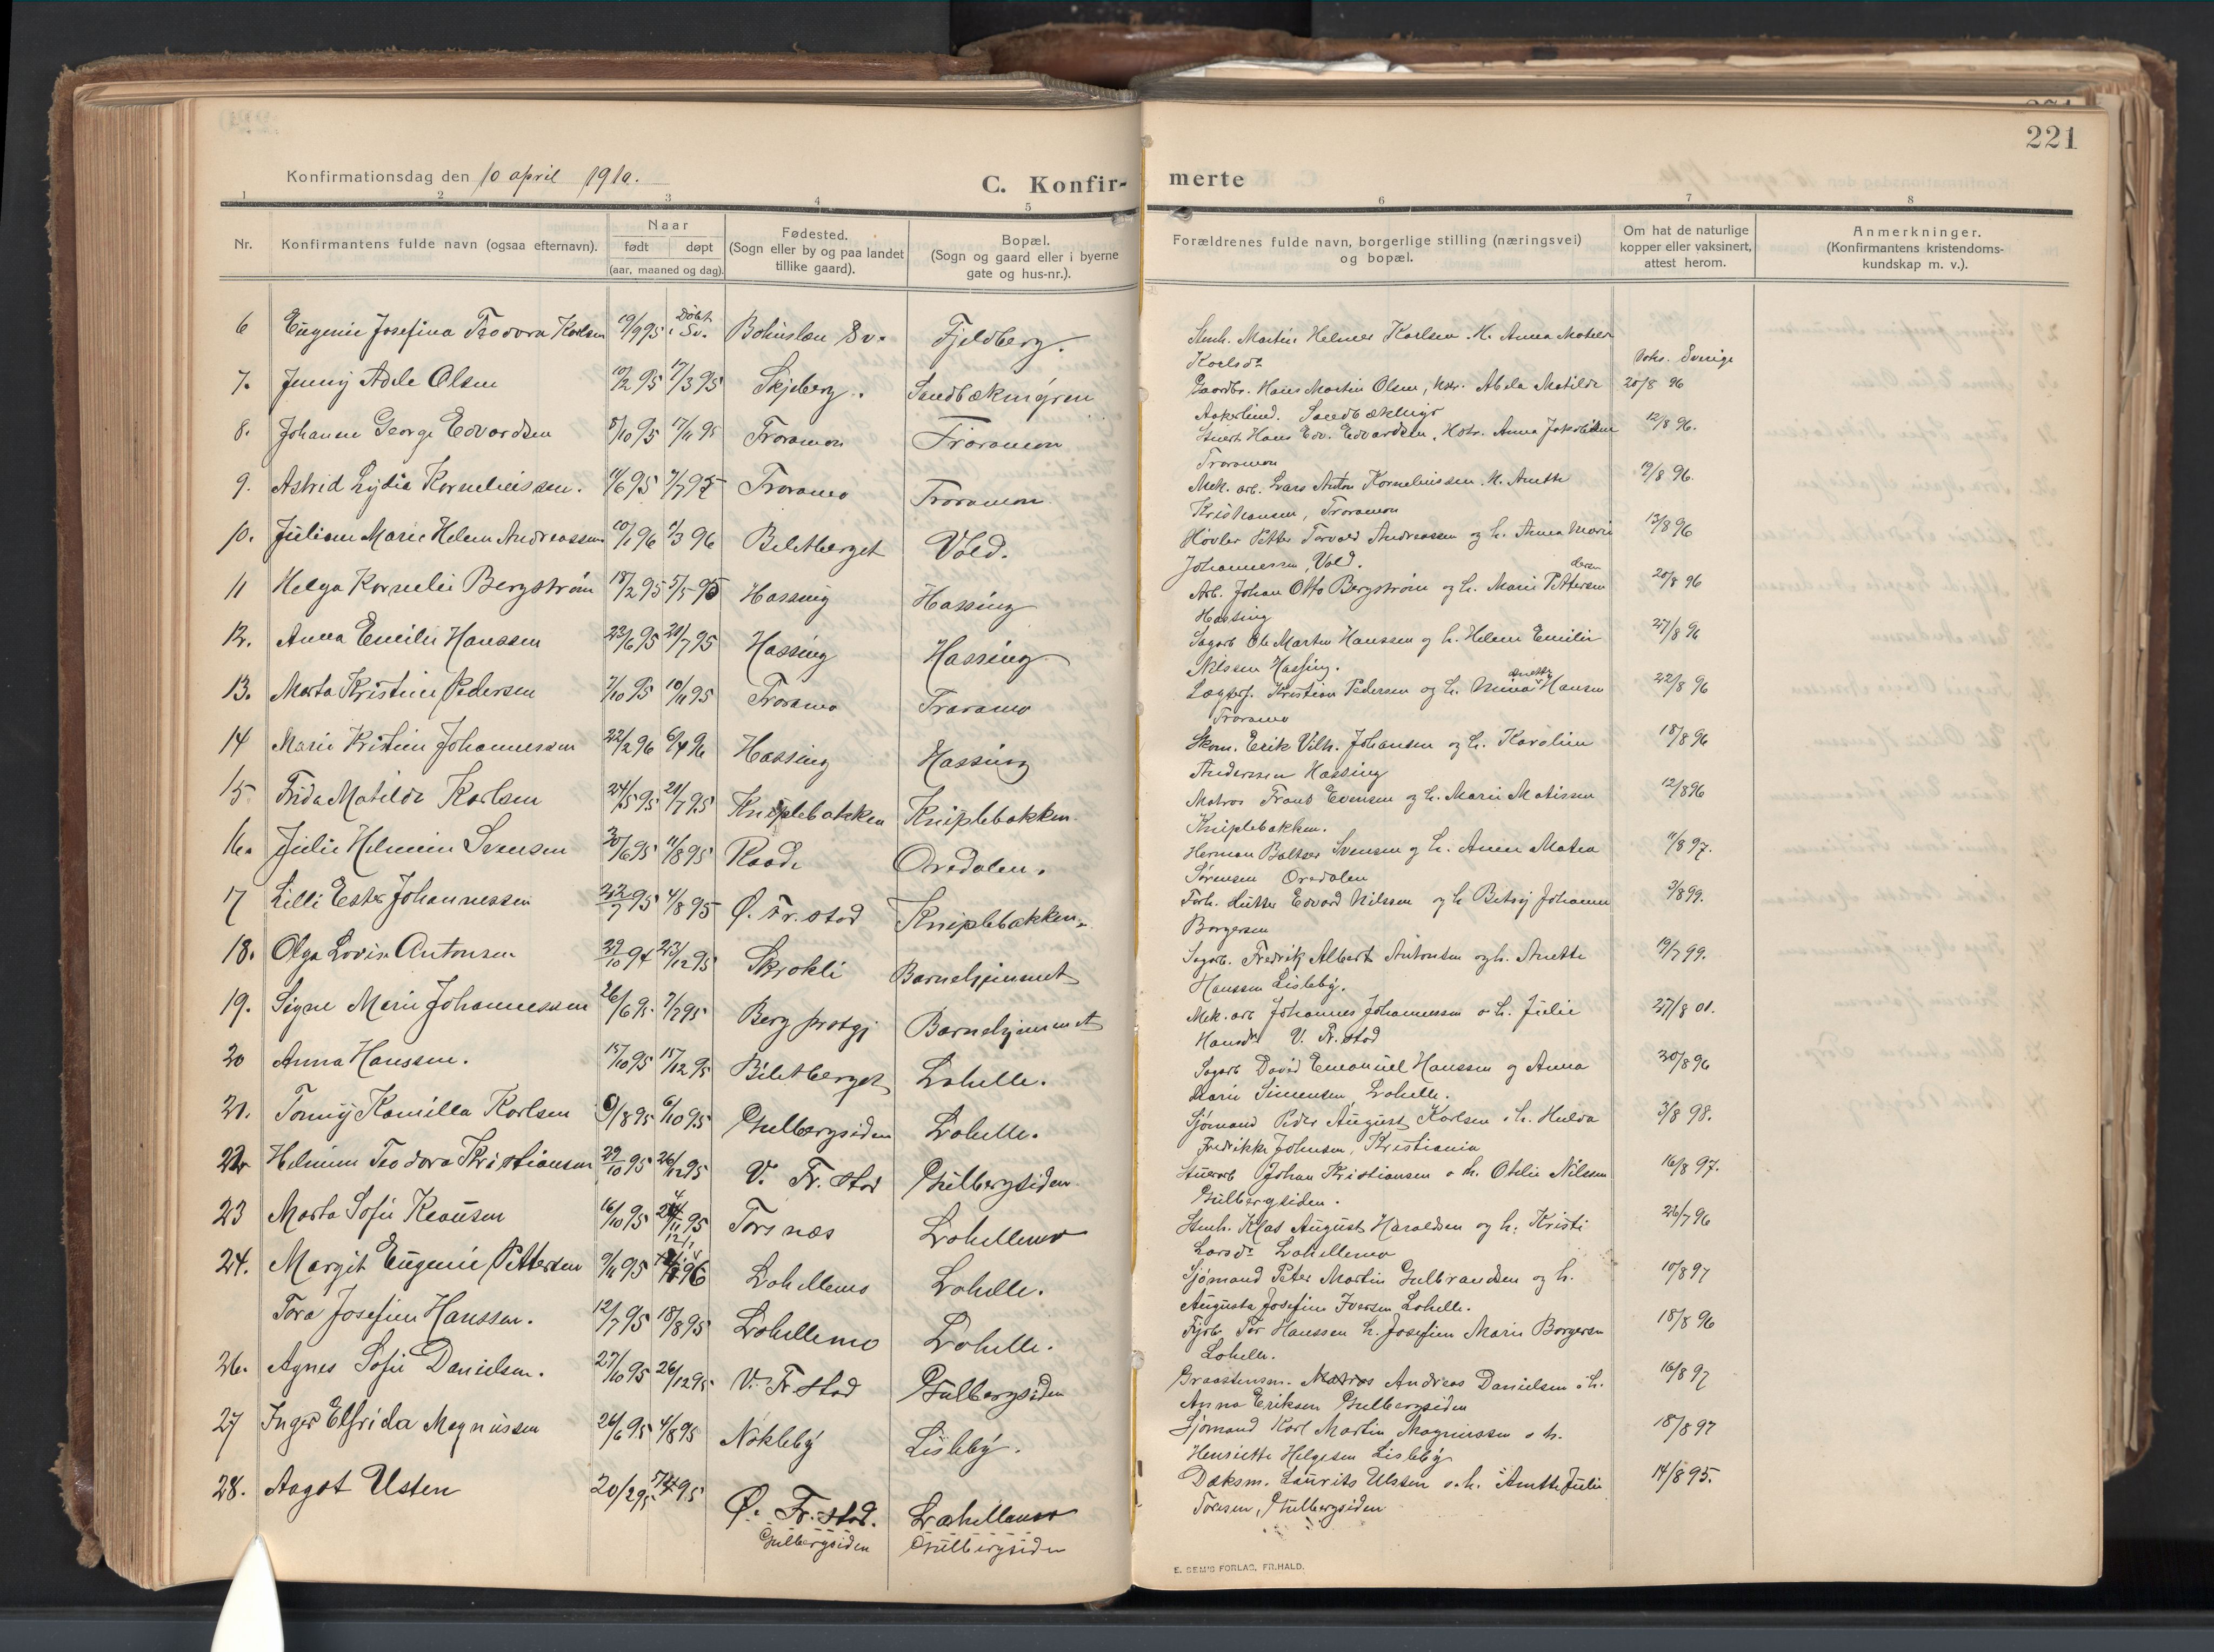 221
Konfirmationsdag den 10 april 1910.
C. Konfir-
merte
1 2 3 4 5 6 7 8
Nr.
Konfirmantens fulde navn (ogsaa efternavn).
Naar
født
døpt
(aar, maaned og dag).
Fødested.
(Sogn eller by og paa landet
tillike gaard).
Bopæl.
(Sogn og gaard eller i byerne
gate og hus-nr.).
Forældrenes fulde navn, borgerlige stilling (næringsvei)
og bopæl.
Om hat de naturlige
kopper eller vaksinert,
attest herom.
Anmerkninger.
(Konfirmantens kristendoms-
kundskap m. v.).
6 Eugenie Josefina Teodora Karlsen 19/9 95 Døbt i Sv. Bohuslæn Sv. Fjeldberg. Stenh. Martin Helmer Karlsen. H. Anna Matilda
Karlsdr Vaks. Sverige
7. Jenny Adele Olsen 10/2 95 17/3 95 Skjeberg. Sandbækmyren Gaardbr. Hans Martin Olsen, Hstr. Abela Matilde 20/8 96
Aakerlund. Sandbækmyr
8. Johanne George Edvardsen 8/10 95 17/11 95 Traramoen Traramoen Stuert Hans Edv. Edvardsen, Hstr. Anna Jakobsen 12/8 96.
Traramoen
9. Astrid Lydia Korneliussen. 11/6 95 7/7 95 Traramo Traramoen Mek. arb. Lars Anton Korneliussen. H. Anette 19/8 96.
Kristiansen, Traramoen
10. Juliane Marie Helene Andreassen 10/1 96 1/3 96 Biletberget Vold. Høvler Petter Torvald Andreassen og h. Anna Marie 13/8 96
Johannessen, Vold.
11 Helga Kornelie Bergstrøm 18/2 95 5/5 95 Hassing Hassing Arb. Johan Otto Bergstrøm og h. Marie Pettersen 20/8 96
Hassing
12. Anna Emilie Hanssen 23/6 95 21/7 95 Hassing Hassing Sagarb Ole Martin Hanssen og h. Helene Emilie 27/8 96
Nilssen Hassing.
13. Marta Kristine Pedersen 7/10 95 10/11 95 Traramo Traramo Kristian Pedersen og h. Mina Anette Hansen 22/8 96
Traramo
14 Marie Kristine Johannessen 22/2 96 6/4 96 Hassing Hassing Skom. Erik Vilh. Johansen og h. Karoline 18/8 96
Anderssen Hassing
15 Frida Matilde Karlsen 24/5 95 21/7 95 Kniplebakken Kniplebakken. Matros Frans Evensen og h. Marie Matissen 12/8 96
Kniplebakken.
16. Julie Helmine Svensen 30/6 95 11/8 95 Raade Oredalen. Herman Baltzer Svensen og h. Anne Matea 11/8 97.
Sørensen Oredalen
17 Lilli Ester Johannessen 22/7 95 4/8 95 Ø. Fr. stad Kniplebakken. Forh. Hutter Edvard Nilssen og h Betsy Johanne 3/8 99.
Borgersen
18. Olga Lovise Antonsen 29/10 94 23/12 95 Skrokli Barnehjemmet Sagarb. Fredrik Albert Antonsen og h. Anette 19/7 99.
Hanssen Lisleby.
19. Signe Marie Johannessen 26/6 95. 7/7 95 Berg prstgj Barnehjemmet Mek. arb Johannes Johannessen o h. Julie 27/8 01.
Hansdr V. Fr. stad
20 Anna Hanssen. 15/10 95 15/12 95 Biletberget Lahelle. Sagarb David Emanuel Hanssen og Anna 30/8 96
Marie Simensen, Lahelle.
21. Tommy Kamilla Karlsen 9/8 95 6/10 95 Gulbergsiden Lahelle. Sjømand Peder August Karlsen o h. Hulda 3/8 98.
Fredrikke Johnsen, Kristiania
22 Helmine Teodora Kristiansen 29/10 95 26/12 95 V. Fr. stad Gulbergsiden. Stuerarb Johan Kristiansen o h. Otilie Nilssen 16/8 97.
Gulbergsiden.
23 Marta Sofie Klausen 16/10 95 24/11 95 Torsnæs Lahellemo Stenh. Klas August Haraldsen og h. Kristi 26/7 96
Larsdr Lahellemo
24. Margit Eugenie Pettersen 9/11 95 96 Lahellemo Lahelle. Sjømand Peter Martin Gulbrandsen og h. 10/8 97
Augusta Josefine Iversen Lahelle.
Tora Josefine Hanssen. 12/7 95 18/8 95 Lahellemo Lahelle. Fyrb. Tor Hanssen h. Josefine Marie Borgersen 18/8 96
Lahelle.
26. Agnes Sofie Danielsen. 27/10 95 26/12 95 V. Fr stad Gulbergsiden Graastensm. Matros Andreas Danielsen o h. 16/8 97
Anna Eriksen Gulbergsiden
27 Inger Elfrida Magnussen 26/6 95 4/8 95 Nokleby Lisleby. Sjømand Karl Martin Magnussen o h. 18/8 97
Henriette Helgesen Lisleby
28. Aagot Ulsten 20/2 95 95 Ø. Fr. stad. Lahellemo Dæksm. Laurits Ulssen o. h. Anette Julie 14/8 95.
Gulbergsiden Gulbergsiden Toresen, Gulbergsiden
E. SEM'S FORLAG, FR.HALD.